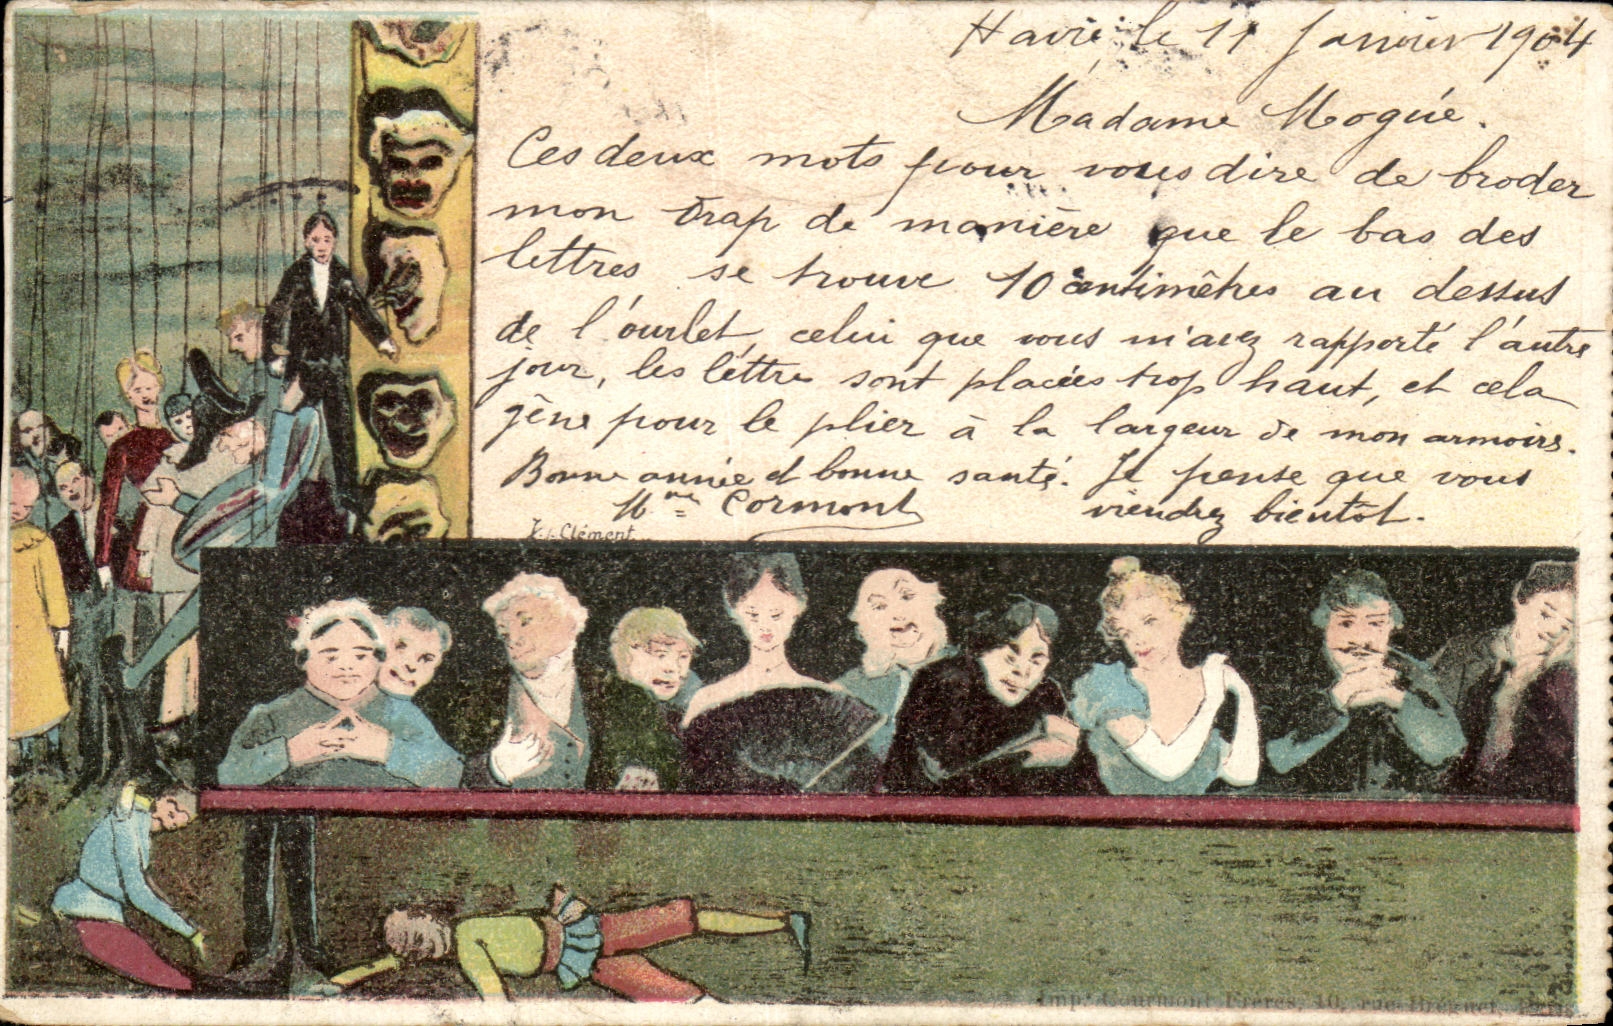 Havre, le 11 Janvier 1904
Madame Moguée.
Ces deux mots pour vous dire de broder
mon drap de manière que le bas des
lettres se trouve 10 centimètres au dessus
de l'ourlet, celui que vous m'avez rapporté l'autre
jour, les lettres sont placées trop haut, et cela
gêne pour le plier à la largeur de mon armoire.
Bonne année et bonne santé. Je pense que vous
viendrez bientôt.
Mme Cormont
Clément
Imp. Courmont Frères, 10, rue Bréguet, Paris